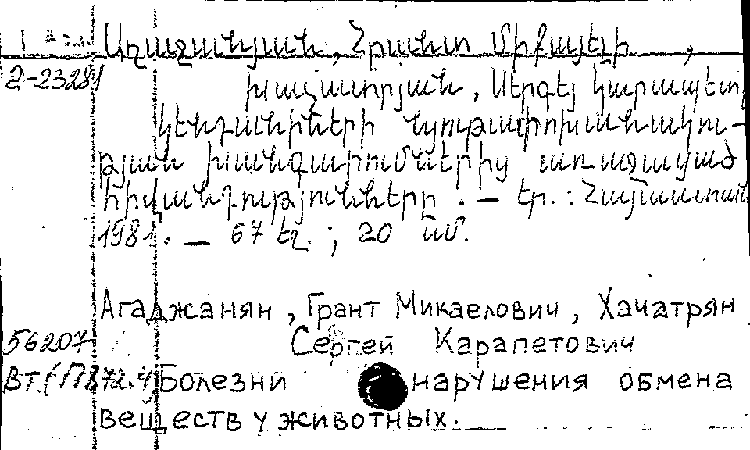 Աղաջանյան, Հրանտ Միքայելի,
2-23281
Խաչատրյան, Սերգեյ Կարապետի
Կենդանիների նյութափոխանակու-
թյան խանգարումներից առաջացած
հիվանդությունները. — Եր.: Հայաստան
1981. — 67 էջ.; 20 սմ.
Агаджанян, Грант Микаелович, Хачатрян
56207 Сергей Карапетович
Болезни нарушения обмена
веществ у животных.